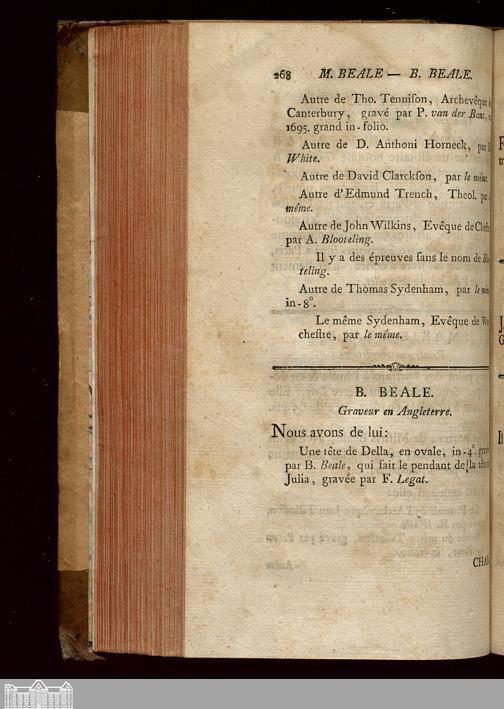 268 M. BEALE — B. BEALE.
Autre de Tho. Tenniſon, Archevêque
Canterbury, gravé par P. van der Banc,
1695. grand in-folio.
Autre de D. Anthoni Horneck, par
White.
Autre de David Clarckſon, par le même.
Autre d'Edmund Trench, Theol. par
même.
Autre de John Wilkins, Evêque de
par A. Blooteling.
Il y a des épreuves ſans le nom de
teling.
Autre de Thomas Sydenham, par le
in-8°.
Le même Sydenham, Evêque de
cheſtre, par le même.
B. BEALE.
Graveur en Angleterre.
Nous avons de lui:
Une tête de Della, en ovale, in-4°.
par B. Beale, qui fait le pendant de la
Julia, gravée par F. Legat.